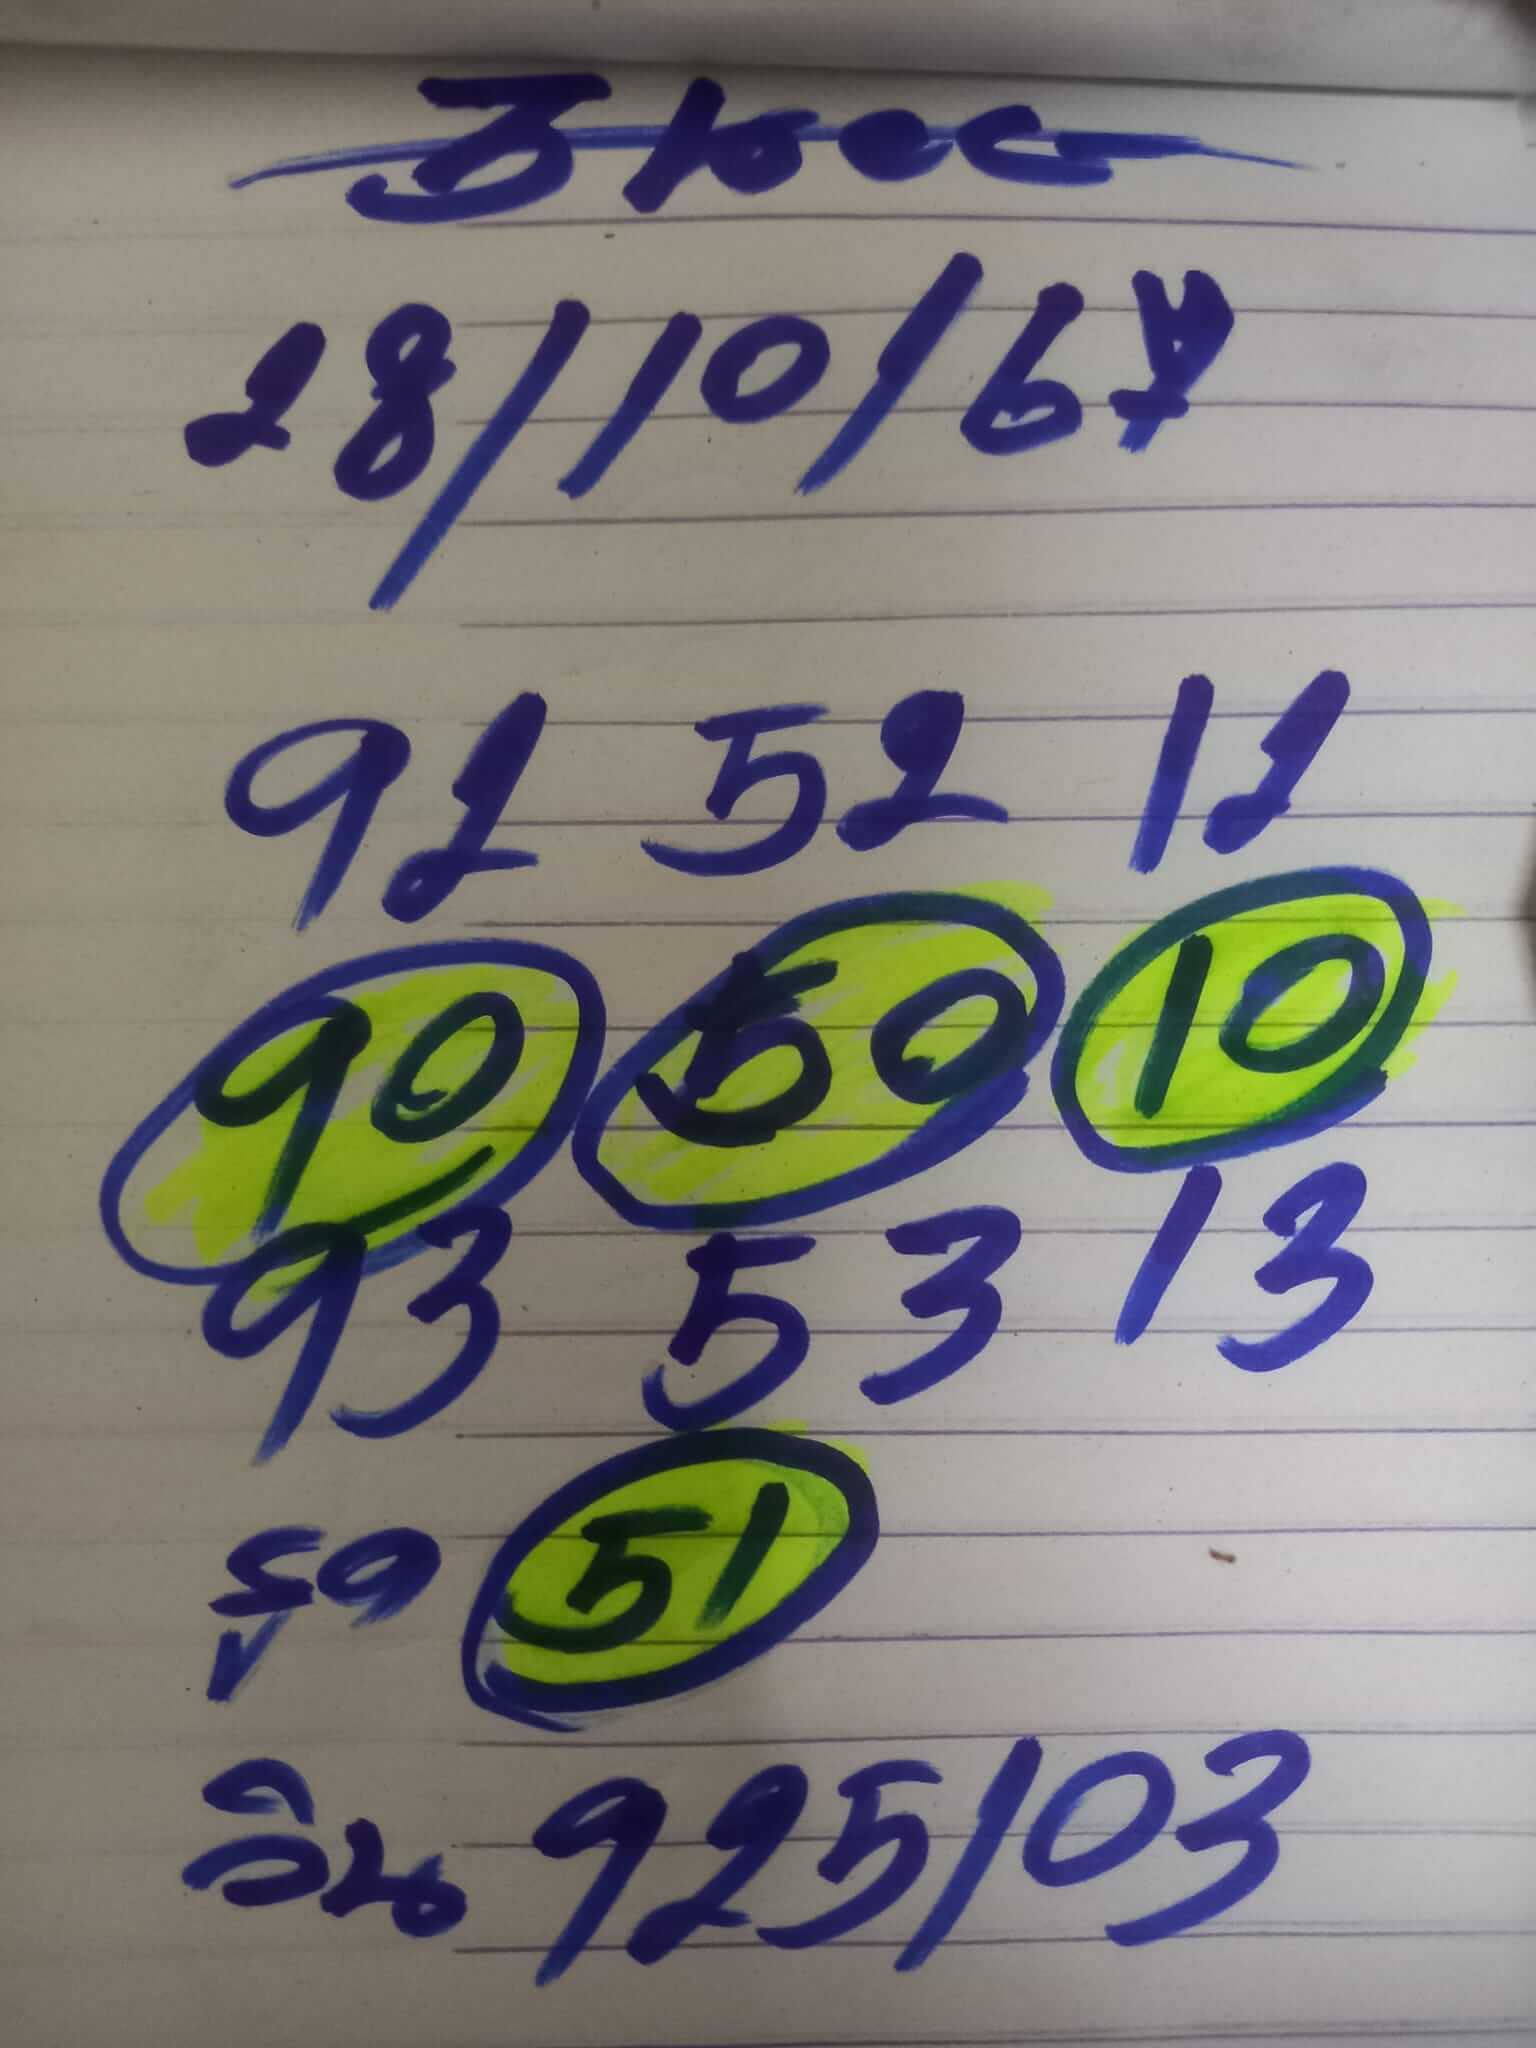 28/10/67
92 52 12
90 50 10
93 53 13
รูด 51
วิน 925/03